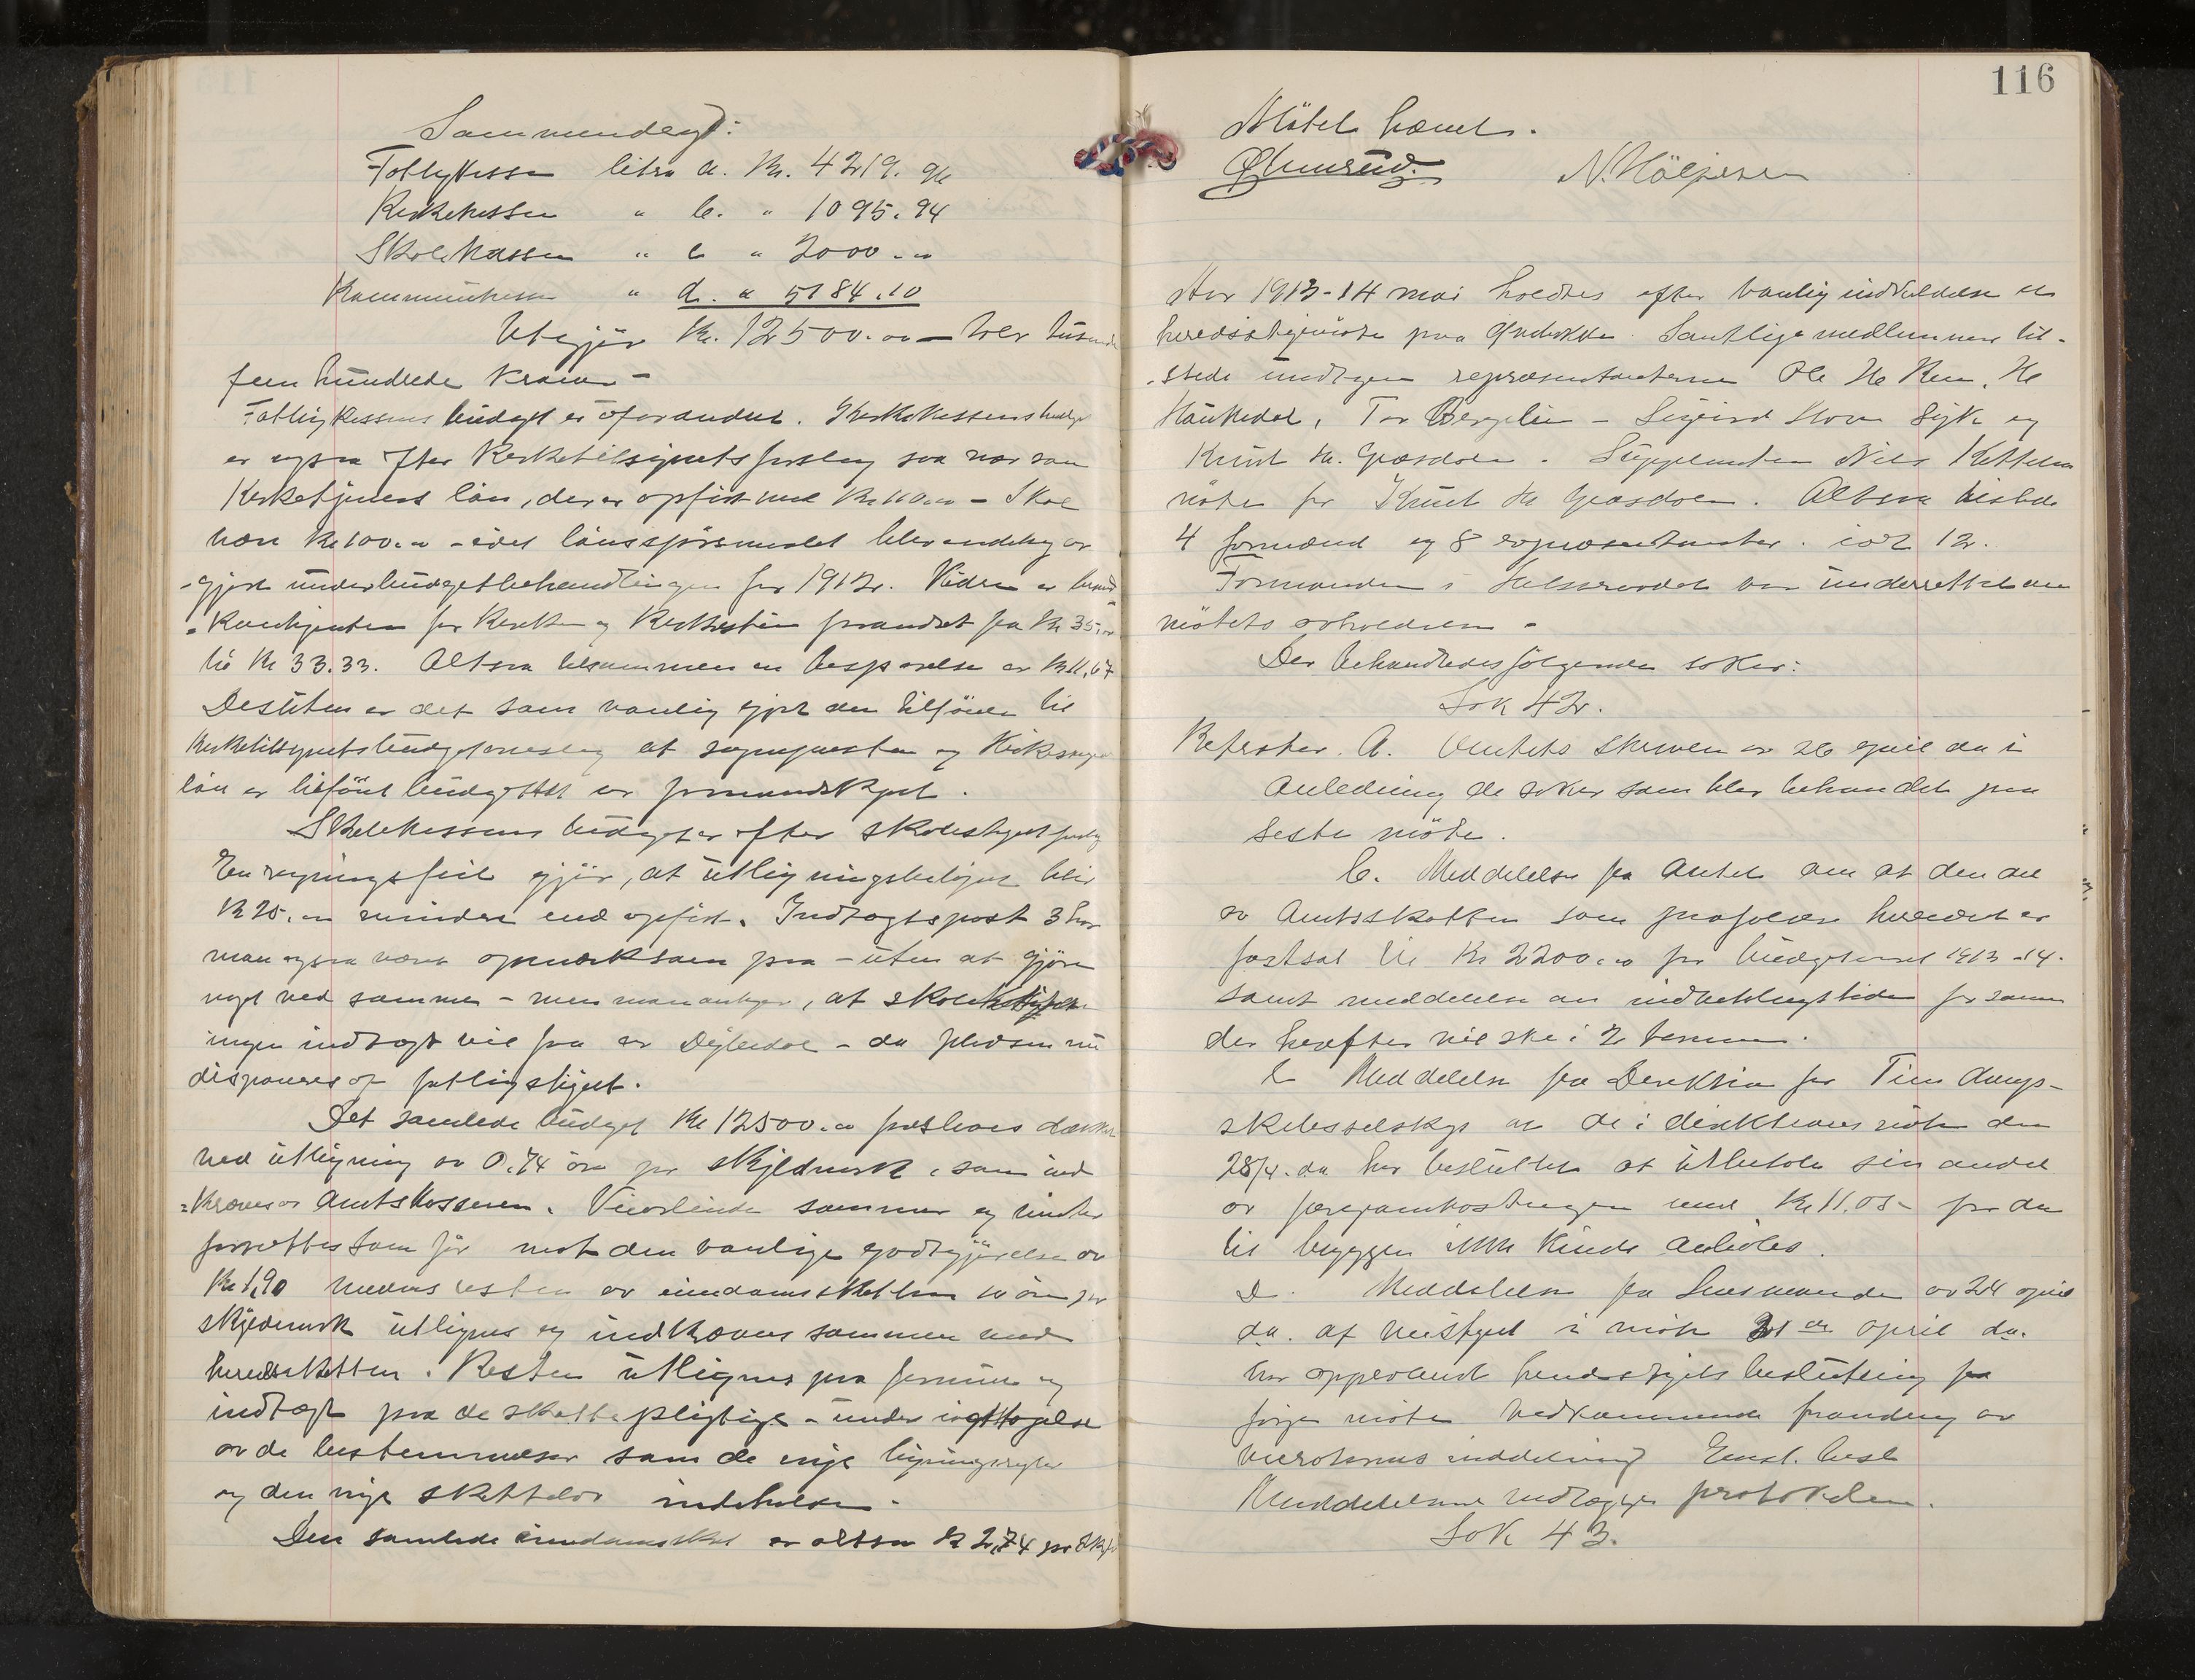 Sammendrag:
Fattigkassen litra a. Kr. 4219.96
Kirkekassen " b. " 1095.94
Skolekassen " c " 2000.00
Kommunekassen " d. " 5184.10
Utgjör Kr. 12500.00 — tolv tusende
fem hundrede kroner —
Fattigkassens budget er uforandret. Kirkekassens budget
er ogsaa efter Kirketilsynets forslag saa nær som
Kirketjeners lön, der er opfört med Kr. 110.00 – Skal
være Kr 100.00 – idet lönsspörsmaalet blev endelig av
-gjort under budgetbehandlingen for 1912. Videre er brand
-kontingenten for Kirken og forandret fra Kr 35.00
til Kr 33.33. Altsaa tilsammen en besparelse av Kr 11.67
Desuten er det som vanlig gjort den tilföielse til
Kirketilsynets budgetforslag at sogneprestens og Kirkesangers
lön er tilföiet budgettet av formandskapet.
Skolekassens budget er efter skolestyrets forslag
En regningsfeil gjör, at utligningsbelöpet blir
Kr 25.00 mindre end opfört. Indtægtspost 3 har
man ogsaa været opmerksom paa – uten at gjöre
noget ved samme – men man antager, at skolekassen
ingen indtægt vil faa av – da pladsen nu
disponeres av fattigstyret.
Det samlede budget Kr 12500.00 foreslaaes dækket
ved utligning av 0,74 öre pr skyldmark, som ind
-kræves av Amtskassereren. Veiarbeide sommer og vinter
forrettes som för mot den vanlige godtgjörelse av
Kr 1,90 mens resten av eiendomsskatten 10 öre pr
skyldmark utlignes og indkræves sammen med
heredsskatten. Resten utlignes paa formue og
indtægt paa de skattepligtige – under iagttagelse
av de bestemmelser som de nye ligningsregler
og den nye skattelov indeholder.
Den samlede eiendomsskat er altsaa Kr 2,74 pr Skyld
116
Mötet hævet.
N. Höljesen
Aar 1913 - 14 mai holdtes efter vanlig indkaldelse et
heredsstyremöte paa. Samtlige medlemmer til-
-stede undtagen repræsentanterne Ole H.
Haukedal, Tor Bergelien – Sigurd syk og
Knut H. Graasdalen. Suplianten Nils
möter for Knut H Graasdalen. Altsaa tilstede
4 formænd og 8 repræsentanter. ialt 12.
Formanden i Helseraadet var underrettet om
mötets avholdelse.
Der behandledes fölgende saker:
Sak 42.
Referater. A. Amtets skrivelse av 26 april da i
anledning de saker som blev behandlet paa
siste möte.
b. Meddelelse fra Amtet om at den del
av Amtsskatten som paafalder heredet er
fastsat til Kr 2200.00 for budgetaaret 1913-14.
samt meddelelse om indbetalingstiden for samme
der herefter vil ske i 2 terminer.
c Meddelelse fra Direktion for Tinn damp-
skibsselskap om de i direktionsmöte den
28/4. da har besluttet at utbetale sin andel
av færgeomkostningen med Kr 11.05 for den
til bryggen kunde anholdes.
D. Meddelelse fra Lensmanden av 24 april
da. at veistyret i möte 21de april da.
har approbert heredsstyrets beslutning fra
forrige möte vedkommende forandring av
veiroternes inddeling Enst. besl
Meddelelserne vedtagges protokolen.
Sak 43.